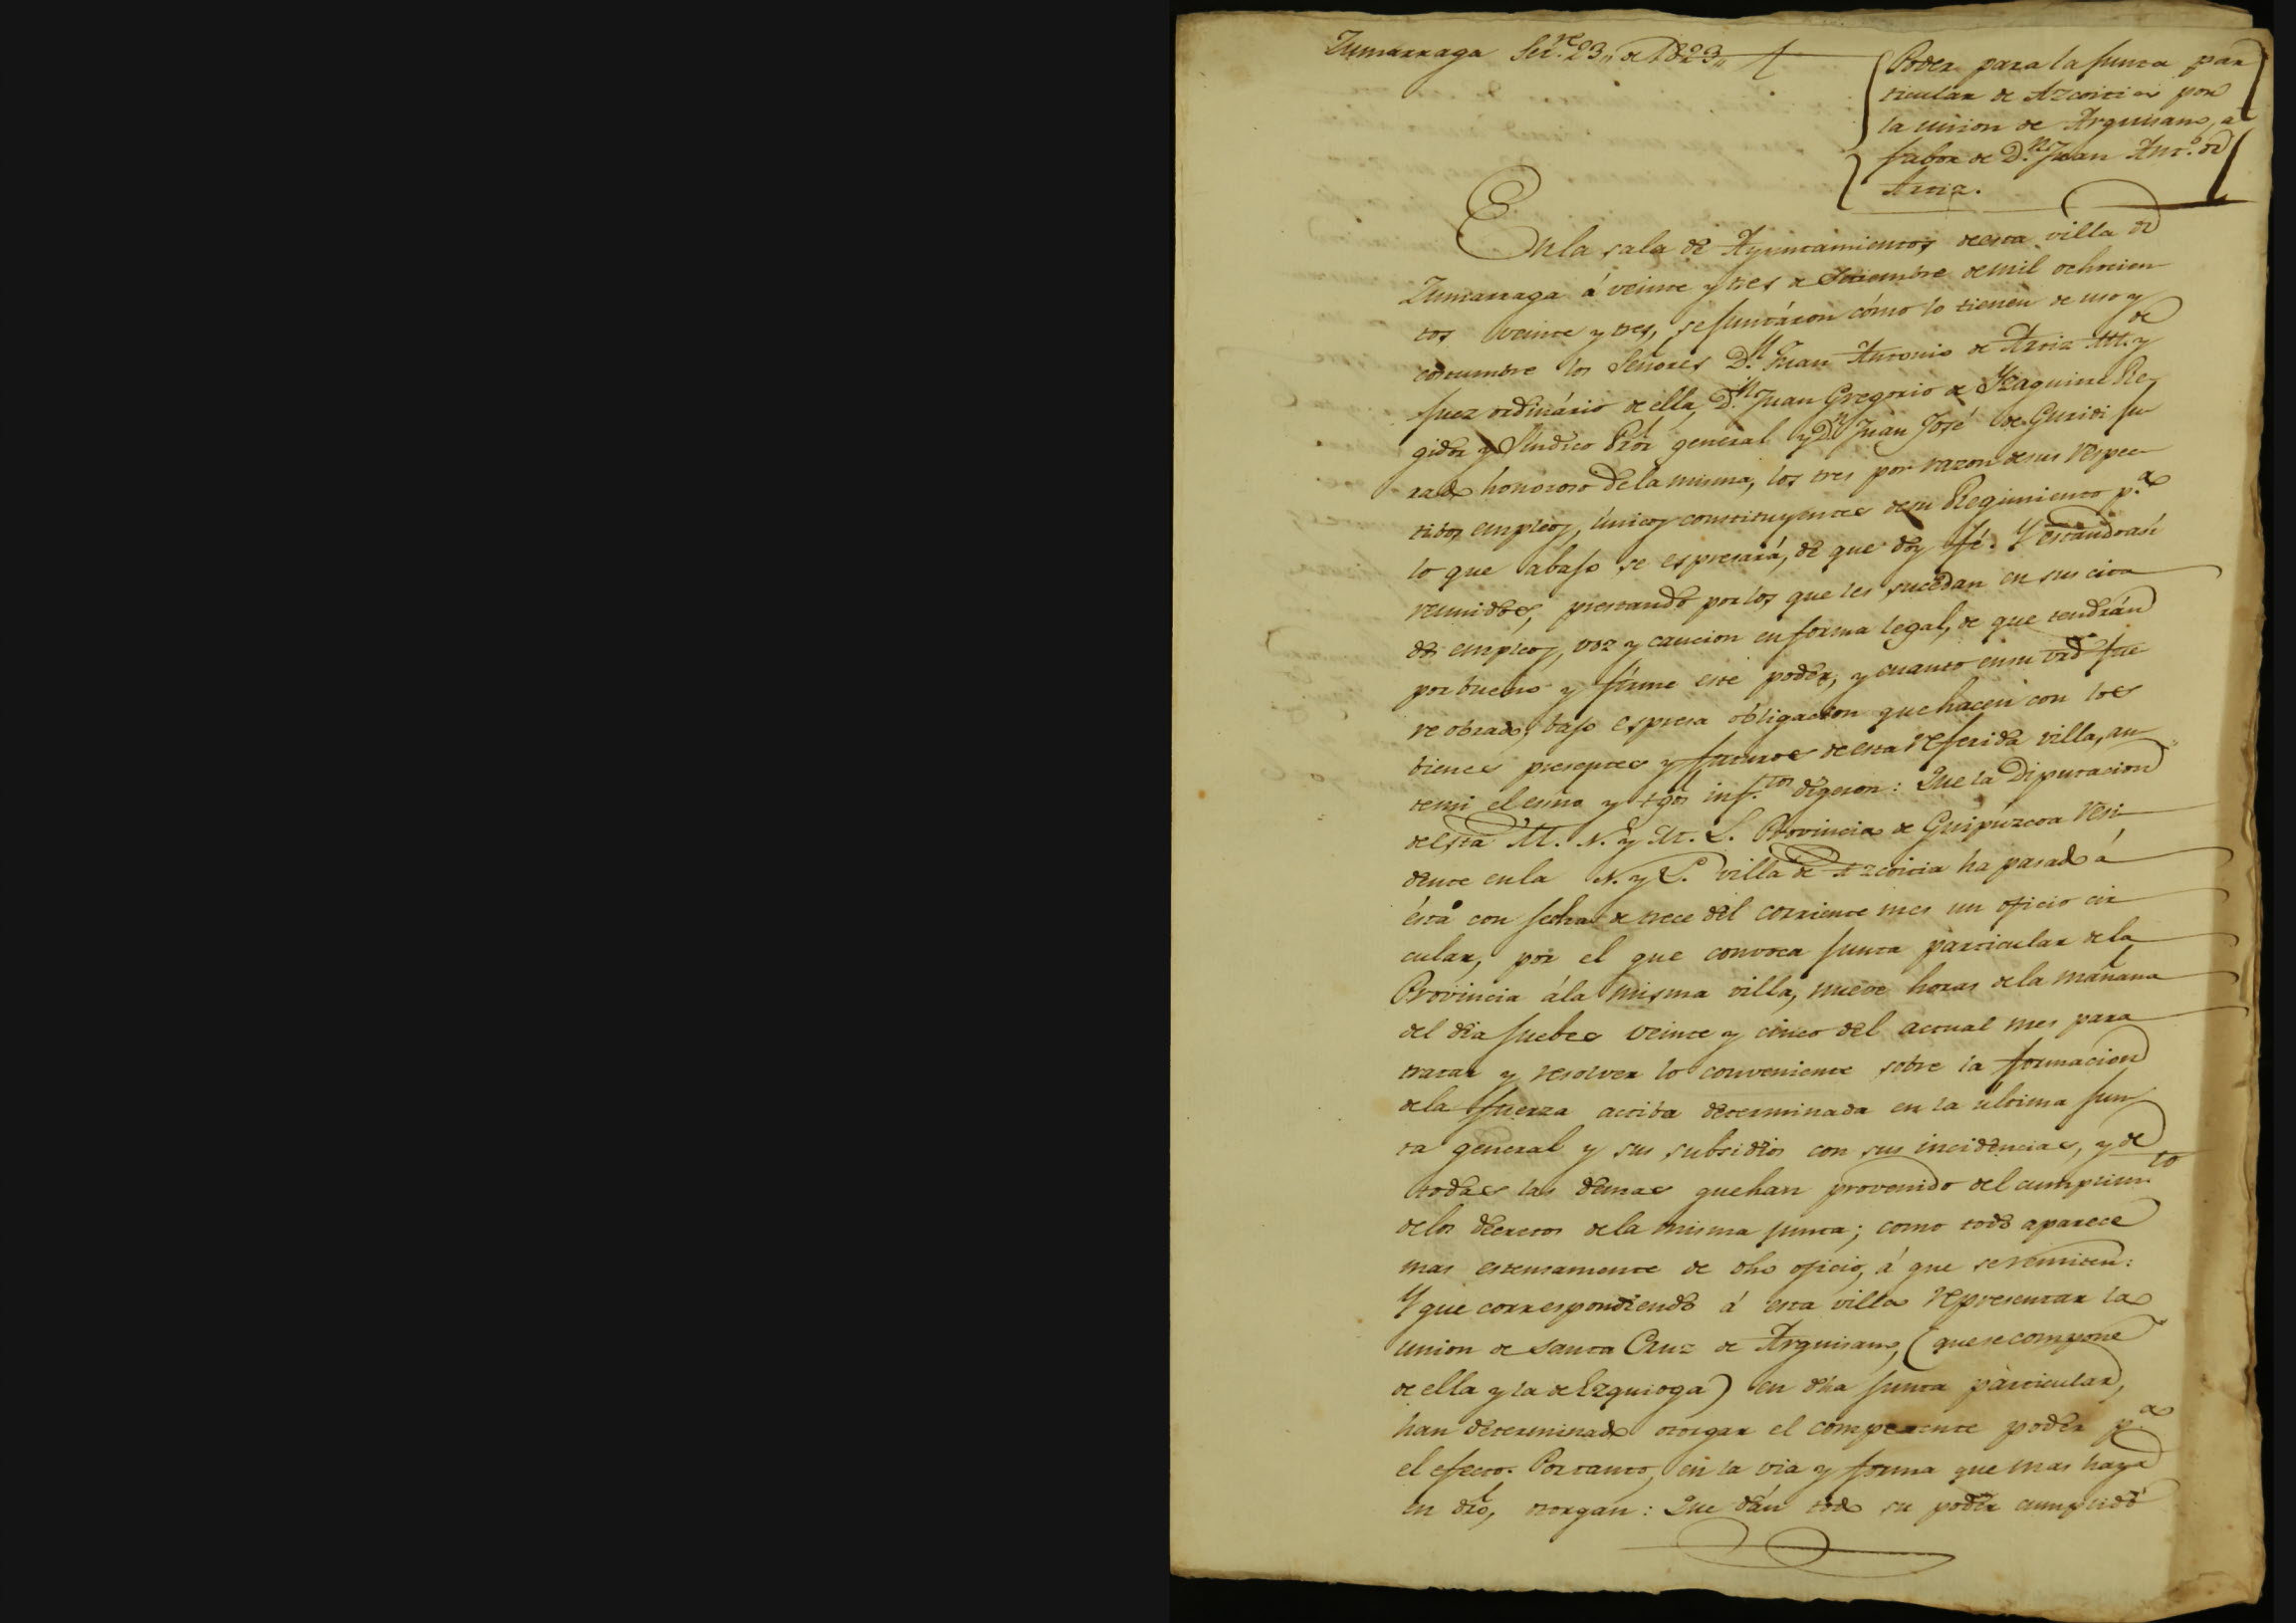 Zumarraga Set.re 23,, de 1823,,
Poder para la junta par
ticular de Azcoitia por
la union de Arguisano, a
fabor de D.n Juan Ant.o de
Arcia.
En la sala de Ayuntamientos de esta villa de
Zumarraga á veinte y tres de Setiembre de mil ochocien
tos veinte y tres, se juntáron cómo lo tienen de uso y
costumbre los Señores D.n Juan Antonio de Arcia Alc.de y
juez ordinário de ella, D.n Juan Gregorio de Yzaguirre Re-
gidor y Síndico Prór general y D.n Juan José de Guridi ju
rado honoroso de la misma, los tres por razon de sus respec
tibos empleos, únicos constituyentes de su Regimiento p.a
lo que abajo se espresará, de que doy fé. Y estando así
reunidos, prestando por los que les sucedan en sus cita
dos empleos, voz y caucion en forma legal, de que tendrán
por bueno y firme este poder, y cuanto en su vrd fue
re obrado, bajo espresa obligacion que hacen con los
bienes presentes y futuros de esta referida villa, an
te mi el esno y tgos inf.tos digeron: Que la Diputacion
de esta M. N. y M. L. Provincia de Guipúzcoa resi
dente en la N. y L. villa de Azcoitia ha pasado á
ésta con fecha de trece del corriente mes un oficio cir
cular, por el que convoca junta particular de la
Provincia á la misma villa, nueve horas de la mañana
del dia juebes veinte y cinco del actual mes para
tratar y resolver lo conveniente sobre la formacion
de la fuerza actiba determinada en la última jun
ta general y sus subsidios con sus incidencias, y de
todas las demas que han provenido del cumplim.to
de los decretos de la misma junta; como todo aparece
mas estensamente de dho oficio, á que se remiten:
Y que correspondiendo á esta villa representar la
union de Santa Cruz de Arguisano, (que se compone
de ella y la de Ezquioga) en dha junta particular,
han determinado otorgar el competente poder p.a
el efecto. Por tanto, en la via y forma que mas haya
en dro, otorgan: Que dán todo su poder cumplido